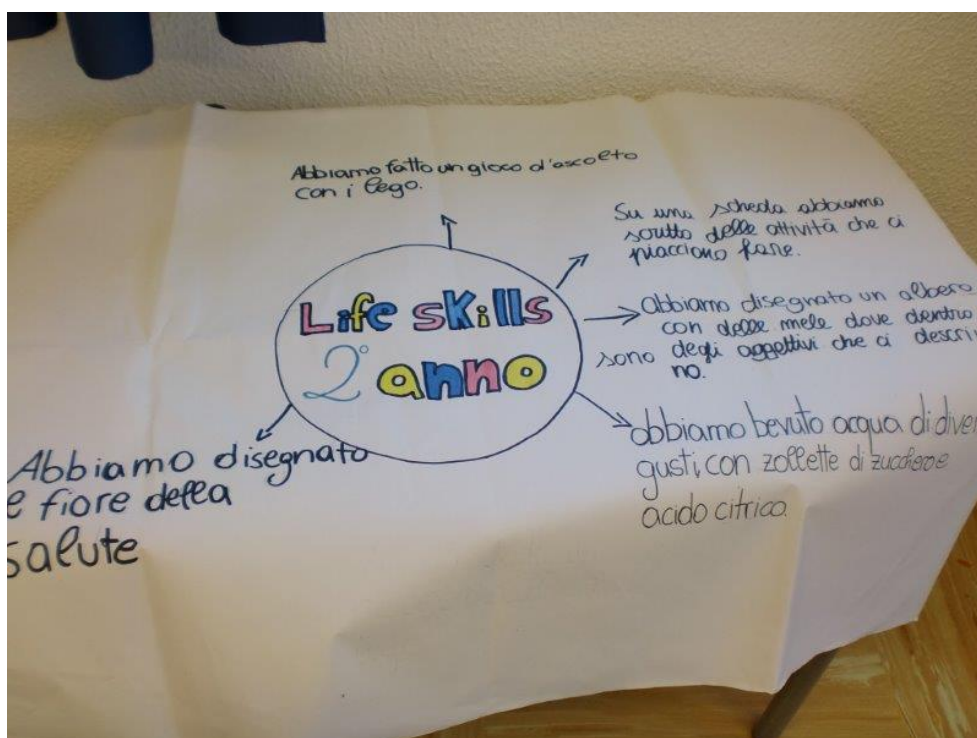 Abbiamo fatto un gioco d'ascolto
con i lego.
Su una scheda abbiamo
scritto delle attività che ci
piacciono fare.
Life skills
2° anno
abbiamo disegnato un albero
con delle mele dove dentro
sono degli aggettivi che ci descri
no.
abbiamo bevuto acqua di diver
gusti, con zollette di zucchero e
acido citrico.
Abbiamo disegnato
fiore della
salute